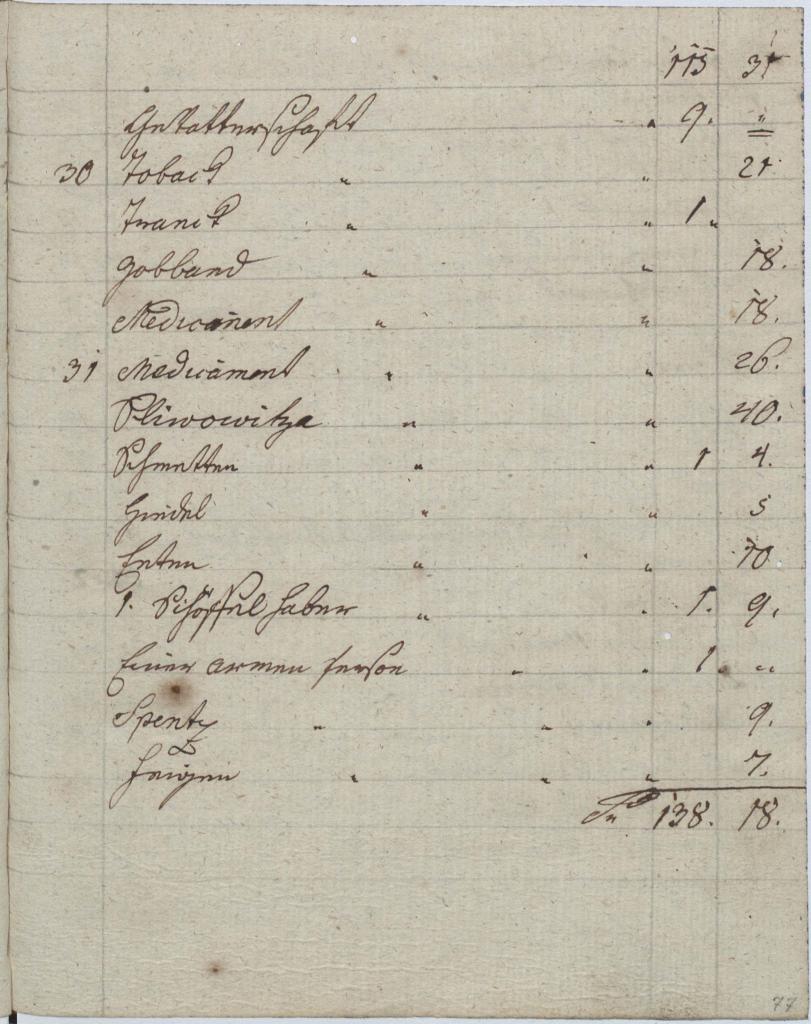 115 31
Gevatterschaft " 9. "
30 Toback " " 21
Tranck " " 1 "
Gobband " " 18.
Medicament " " 18.
31 Medicament " " 26.
Sliwowitza " " 40.
Schmetten " " 1 4.
" " 5
Enten " " 10
1. Schöffel Haber " " 1. 9.
Einer armen Person " " 1. "
Spentz " " " 9.
Feigen " " " 7.
138. 18.
77